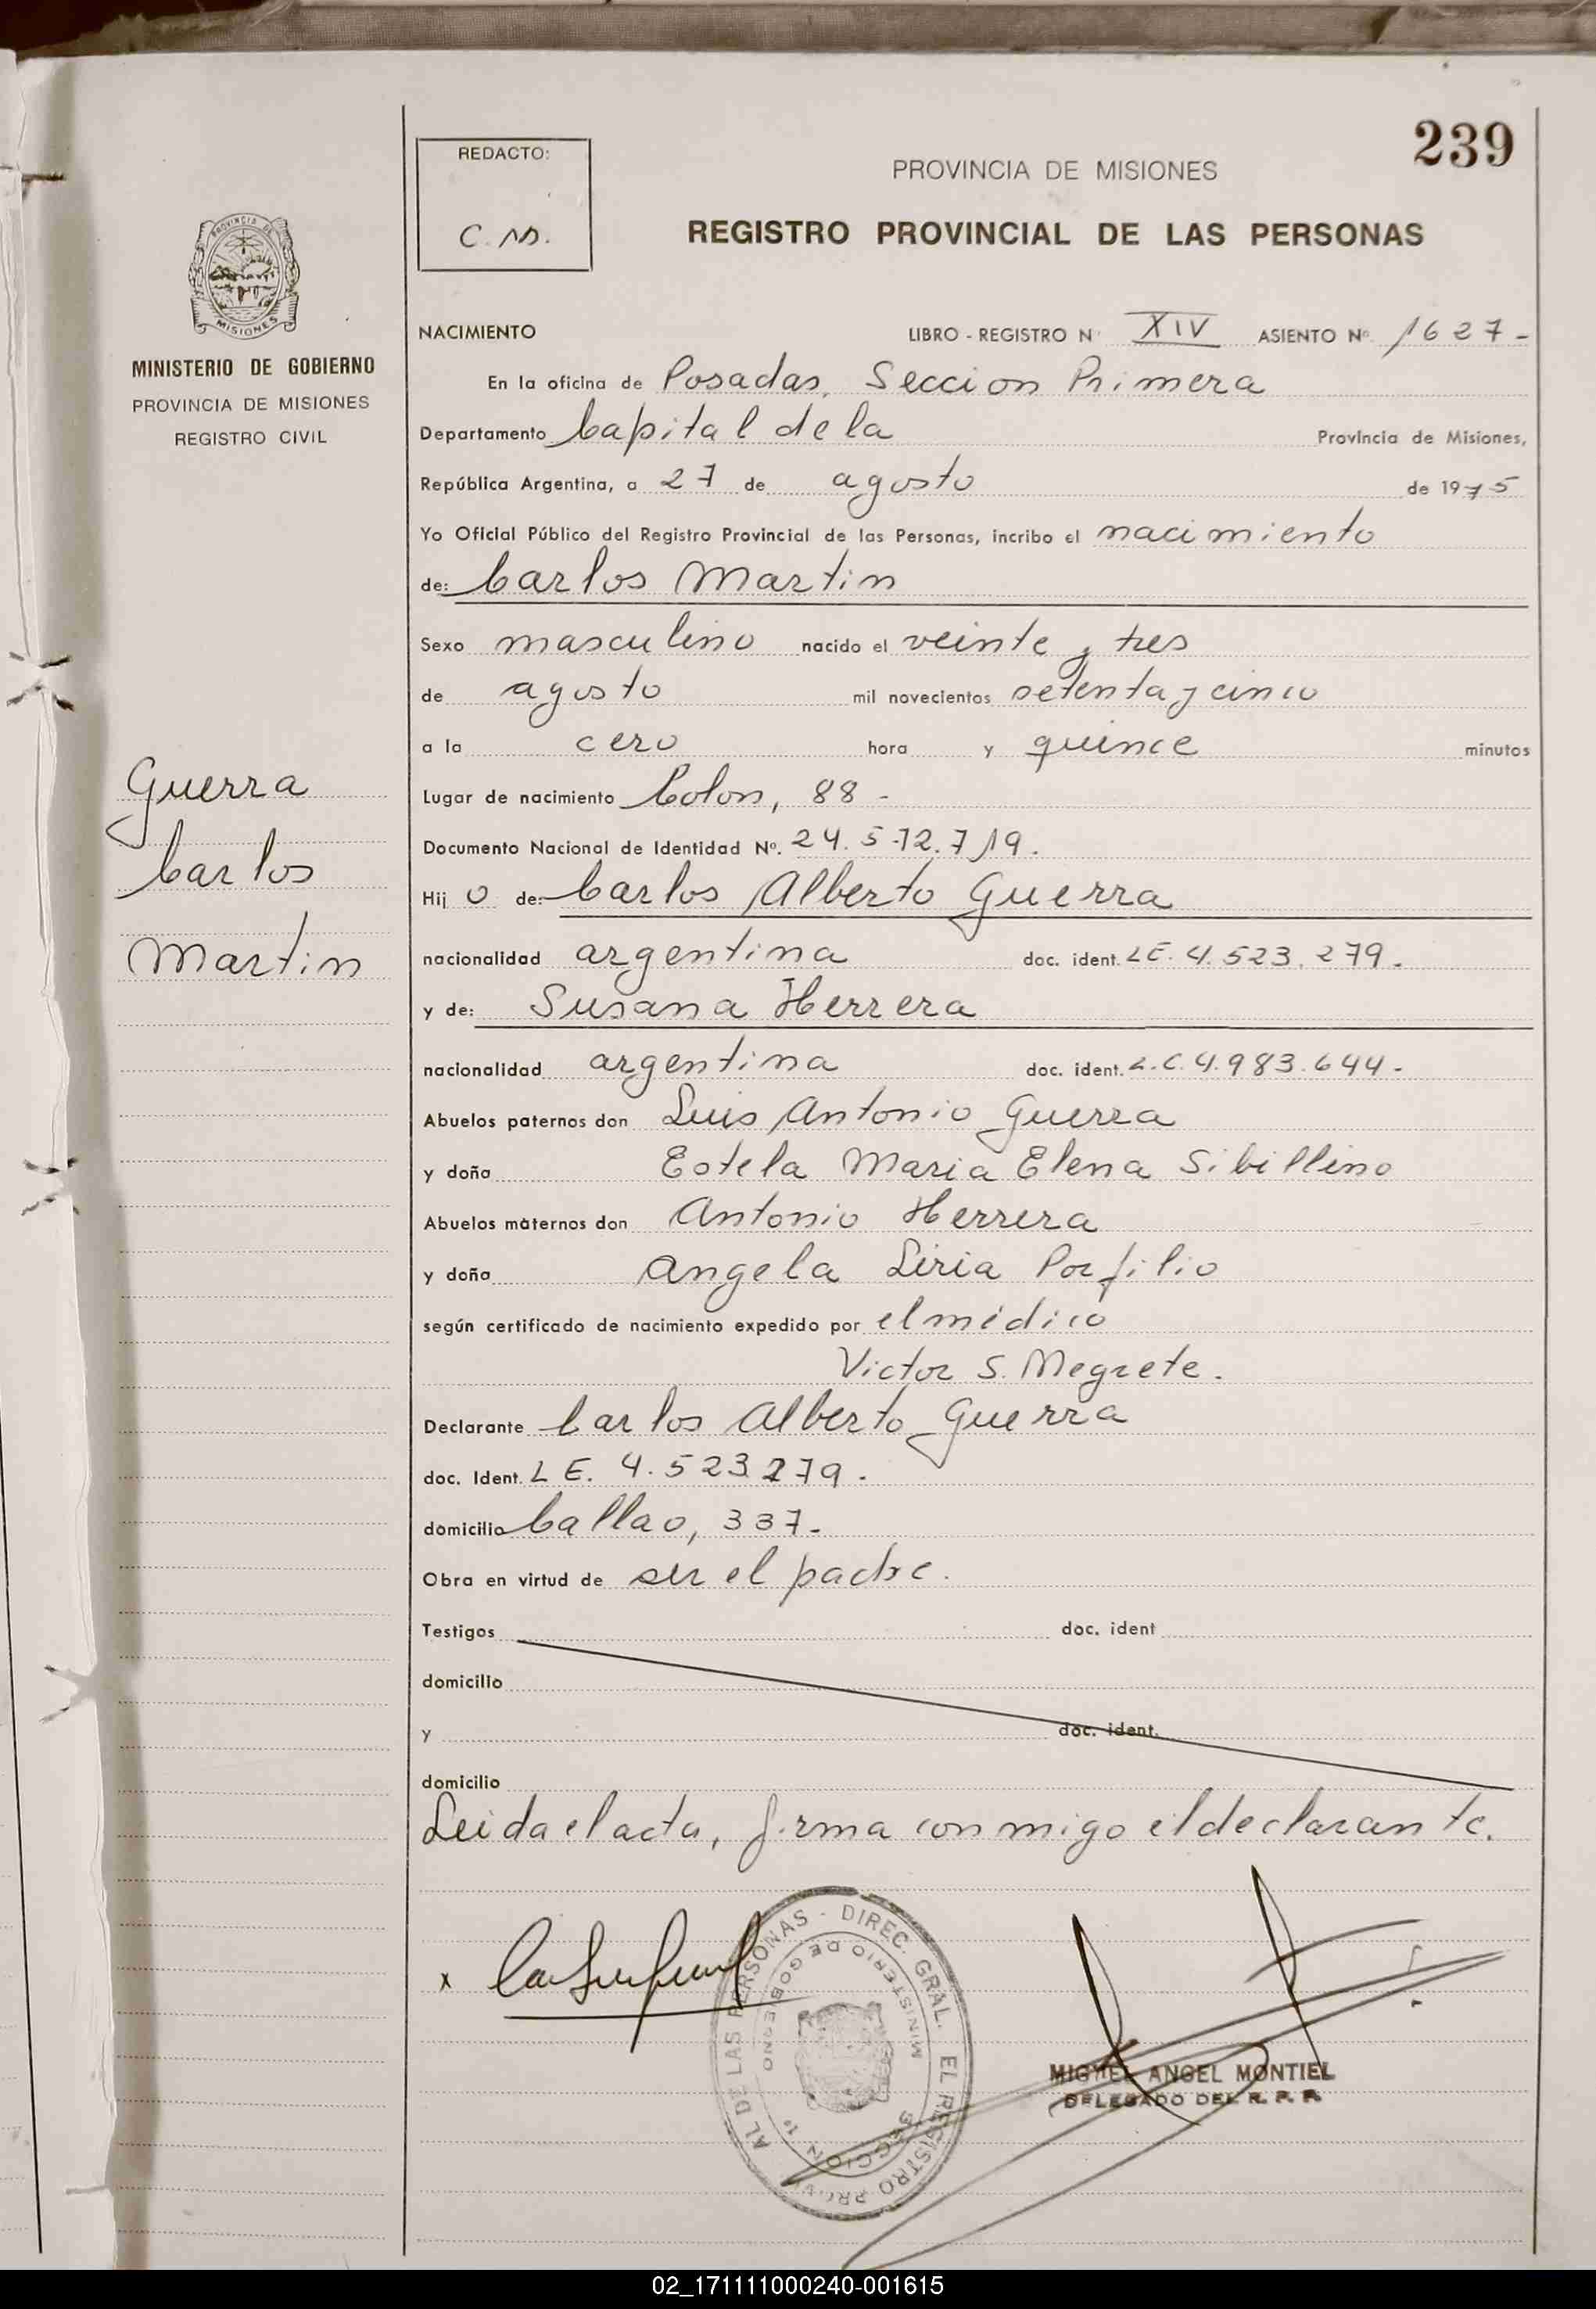 239
REDACTO:
C. M.
PROVINCIA DE MISIONES
REGISTRO PROVINCIAL DE LAS PERSONAS
PROVINCIA DE
MISIONES
MINISTERIO DE GOBIERNO
PROVINCIA DE MISIONES
REGISTRO CIVIL
Guerra
Carlos
Martin
NACIMIENTO LIBRO - REGISTRO Nº XIV ASIENTO Nº 1627-
En la oficina de Posadas, Seccion Primera
Departamento Capital de la Provincia de Misiones,
República Argentina, a 27 de agosto de 1975
Yo Oficial Público del Registro Provincial de las Personas, incribo el nacimiento
de: Carlos Martin
Sexo masculino nacido el veinte y tres
de agosto mil novecientos setenta y cinco
a la cero hora y quince minutos
Lugar de nacimiento Colon, 88 -
Documento Nacional de Identidad Nº. 24.572.719.
Hij o de: Carlos Alberto Guerra
nacionalidad argentina doc. ident. LE. 4.523.279.
y de: Susana Herrera
nacionalidad argentina doc. ident. L.C. 4.983.644-
Abuelos paternos don Luis Antonio Guerra
y doña Estela Maria Elena Sibillino
Abuelos maternos don Antonio Herrera
y doña Angela Liria Porfilio
según certificado de nacimiento expedido por el médico
Victor S. Negrete.
Declarante Carlos Alberto Guerra
doc. Ident. L E. 4.523.279.
domicilio Callao, 337-
Obra en virtud de ser el padre.
Testigos doc. ident
domicilio
y doc. ident.
domicilio
Leida el acta, firma conmigo el declarante.
x
AL DE LAS PERSONAS - DIREC. GRAL. EL REGISTRO PROVIN
MINISTERIO DE GOBIERNO
SECCION 1ª
MIGUEL ANGEL MONTIEL
DELEGADO DEL R. P. P.
02_171111000240-001615